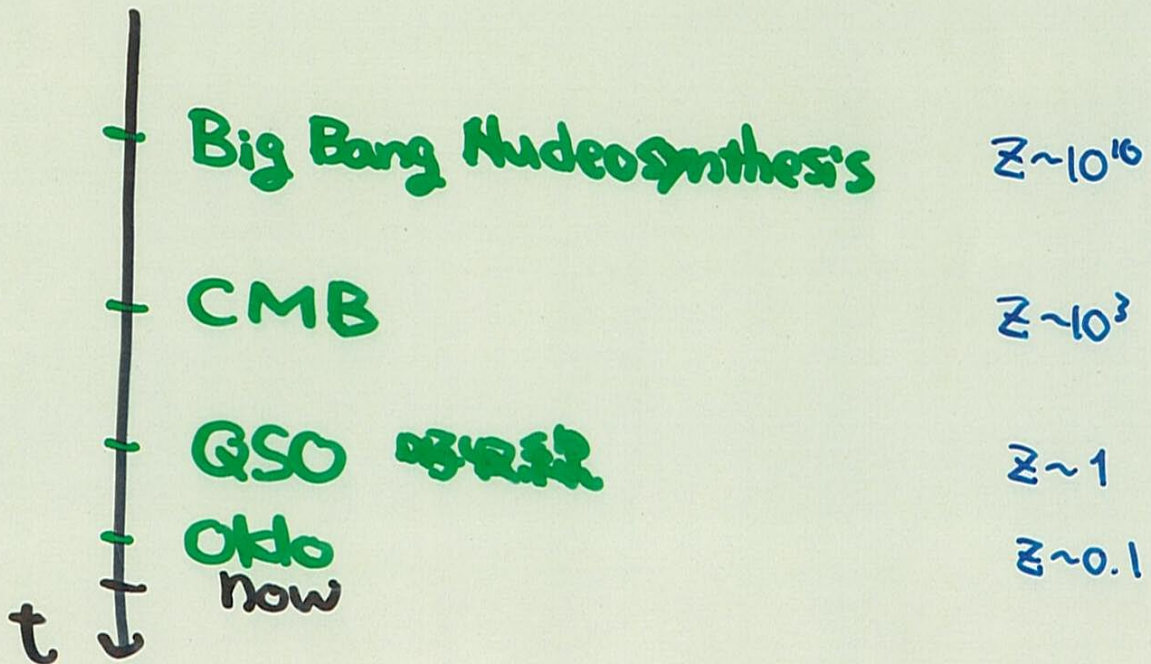 Big Bang Nucleosynthesis z~10¹⁰
CMB z~10³
QSO 吸収線 z~1
Oklo z~0.1
now
t